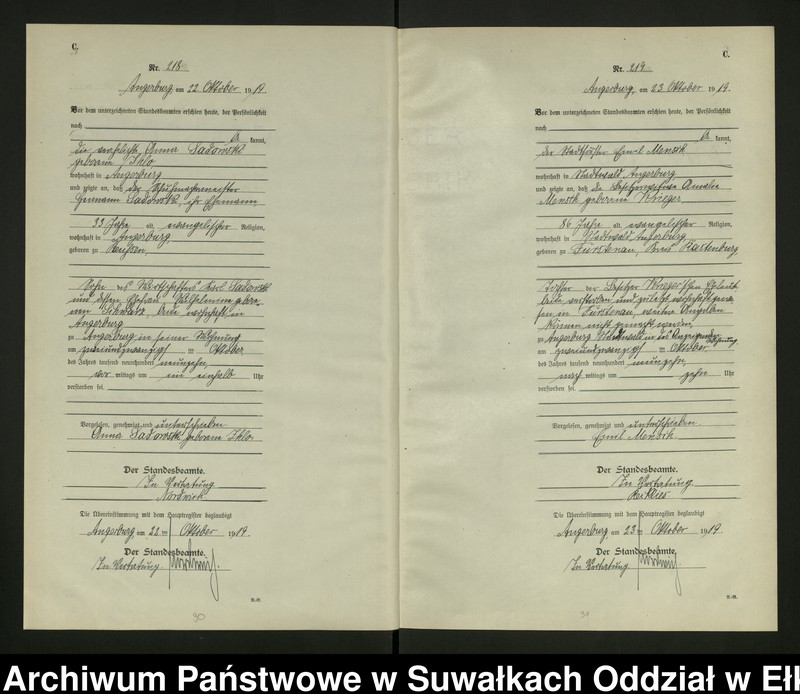 C.
Nr. 218
Angerburg am 22. Oktober 1919.
Vor dem unterzeichneten Standesbeamten erschien heute, der Persönlichkeit
nach
be kannt,
die verehelichte Anna Sadowski
geborene
wohnhaft in Angerburg
und zeigte an, daß der Schuhmachermeister
Hermann Sadowski, ihr Ehemann,
33 Jahre alt, evangelischer Religion,
wohnhaft in Angerburg,
geboren zu
Sohn des Karl Sadowski
und dessen Ehefrau Wilhelmine gebore-
nen beide wohnhaft in
Angerburg
zu Angerburg in seiner Wohnung
am zweiundzwanzigsten Oktober
des Jahres tausend neunhundert neunzehn,
vor mittags um ein einhalb Uhr
verstorben sei.
Vorgelesen, genehmigt und unterschrieben
Anna Sadowski geborene
Der Standesbeamte.
In Vertretung
Die Übereinstimmung mit dem Hauptregister beglaubigt
Angerburg am 22 ten Oktober 1919.
Der Standesbeamte.
In Vertretung
C.
Nr. 219
Angerburg, am 23 Oktober 1919.
Vor dem unterzeichneten Standesbeamten erschien heute, der Persönlichkeit
nach
be kannt,
der Stadtförster Emil
wohnhaft in Stadtwald Angerburg
und zeigte an, daß die Amalie
geborene Krieger
86 Jahre alt, evangelischer Religion,
wohnhaft in Stadtwald Angerburg
geboren zu Fürstenau, Kreis Rastenburg
Tochter der Besitzer Krieger'schen Eheleute
beide verstorben und zuletzt wohnhaft gewe-
sen in Fürstenau, weitere Angaben
können nicht gemacht werden,
zu Angerburg Stadtwald in des Anzeigenden Wohnung
am zweiundzwanzigsten Oktober
des Jahres tausend neunhundert neunzehn,
nach mittags um zehn Uhr
verstorben sei.
Vorgelesen, genehmigt und unterschrieben
Emil
Der Standesbeamte.
In Vertretung
Die Übereinstimmung mit dem Hauptregister beglaubigt
Angerburg, am 23 ten Oktober 1919.
Der Standesbeamte.
In Vertretung
Archiwum Państwowe w Suwałkach Oddział w Ełk